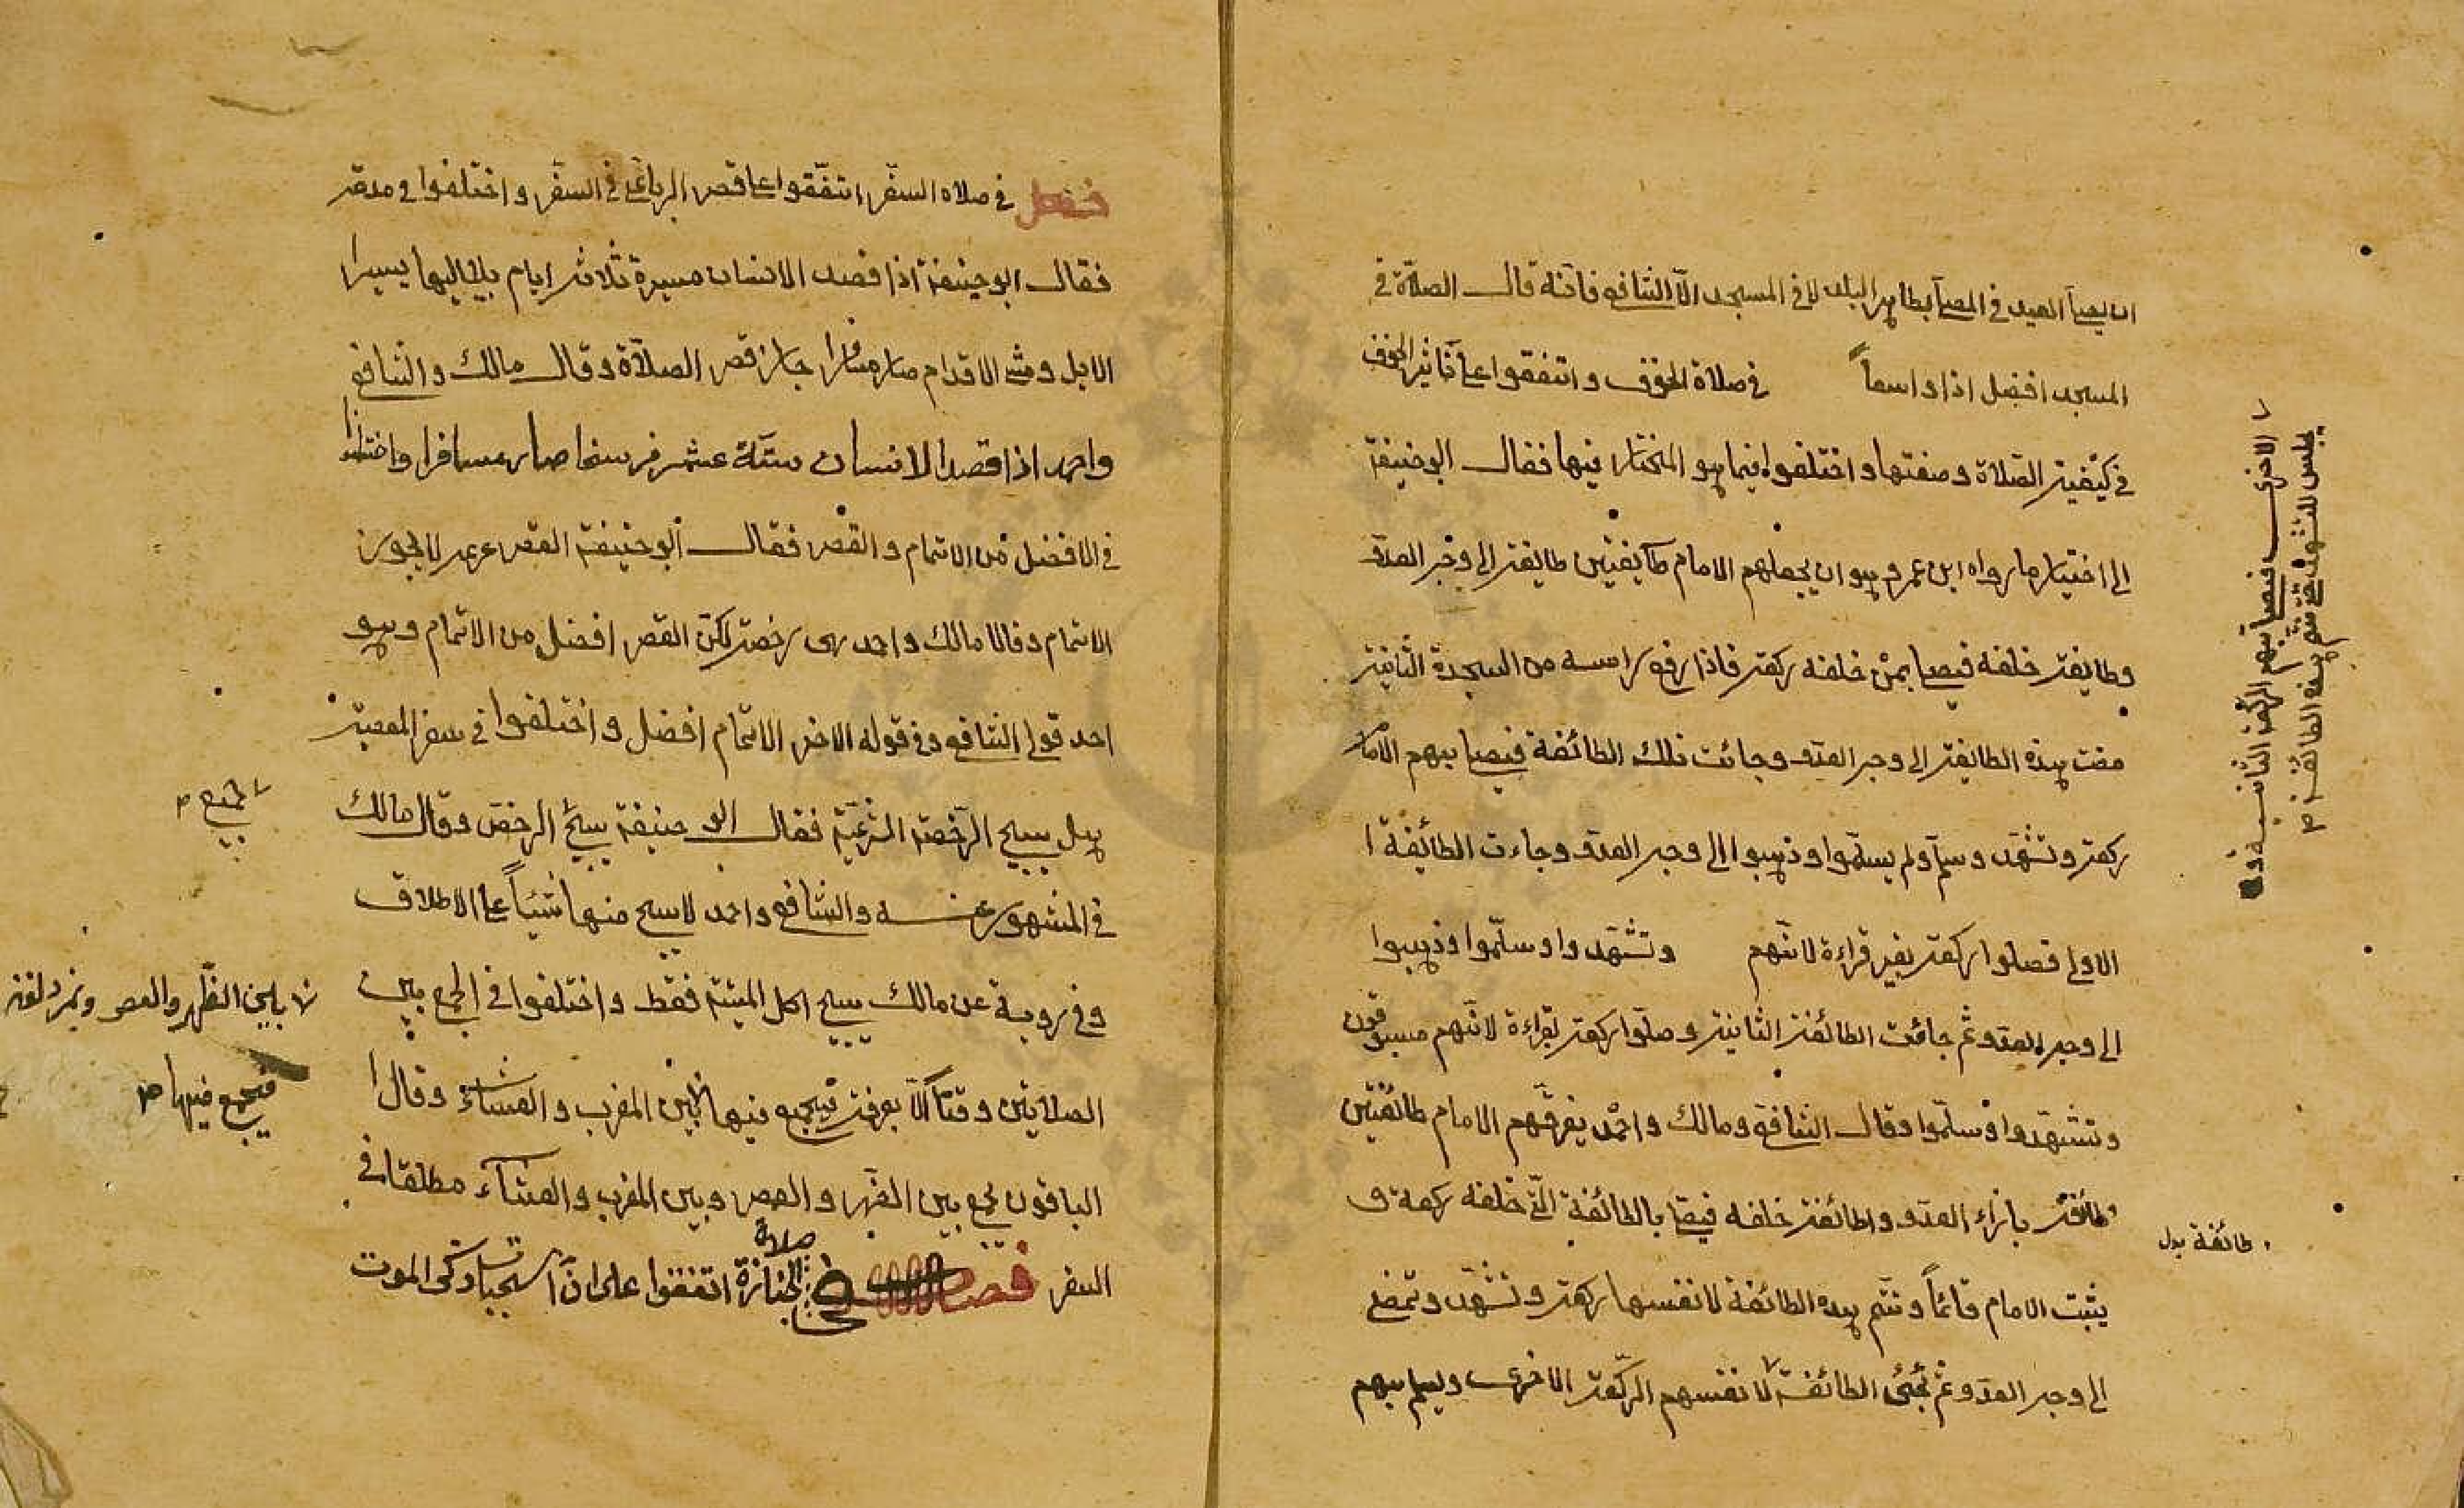 ان يصلى العيد في المصلى بظاهر البلد لا في المسجد الّا الشافعي فانّه قال الصلاة في
المسجد افضل اذا واسعاً في صلاة الخوف واتفقوا على تأثير الخوف
في كيفية الصّلاة وصفتها واختلفوا فيما هو المختار فيها فقال ابو حنيفة
الى اختيار ما رواه ابن عمر وهو ان يجعلهم الامام طايفتين طايفة الى وجه العدوّ
وطايفة خلفه فيصلى بمن خلفه ركعة فاذا رفع راسه من السجدة الثانية
مضت هذه الطايفة الى وجه العدوّ وجائت تلك الطائفة فيصلى بهم الامام
ركعة وتشهّد وسلّم ولم يسلّموا وذهبوا الى وجه العدوّ وجاءت الطائفة ا
الاولى فصلوا ركعة بغير قراءة لانّهم وتشّهدوا وسلّموا وذهبوا
الى وجه العدو ثم جائت الطائفة الثانية وصلّوا ركعة بقراءة لانّهم مسبوقون
وتشهّدوا وسلّموا وقال الشافعي ومالك واحمد يفرقهم الامام طائفتين
طائفة بازاء العدوّ والطائفة خلفه فيصلى بالطائفة الّتي خلفه ركعة و
يثبت الامام قائماً وتتم هذه الطائفة لانفسها ركعة وتشهّد وتمضى
الى وجه العدو ثم تجئ الطائفة لانفسهم الركعة الاخرى ويسلم بهم
الاخرى فيصلى بهم الركعة الثانية و
يجلس للتشهد ثم تتم هذه الطائفة م
طائفة بدل
فصل في صلاه السفر اتفّقوا على قصر الرباعى في السفر واختلفوا في مدته
فقال ابو حنيفة اذا قصد الانسان مسيرة ثلاثة ايام بلياليها يسيرا
الابل ومشى الاقدام صار مسافرا جاز قصر الصلاة وقال مالك والشافعي
واحمد اذا قصد الانسان ستّة عشر فرسخا صار مسافرا واختلفوا
في الافضل من الاتمام والقصر فقال ابو حنيفة القصر عزمه لا يجوز
الاتمام وقالا مالك واحمد هى رخصة لكن القصر افضل من الاتمام وهو
احد قولى الشافعي وفي قوله الاخر الاتمام افضل واختلفوا في سفر المعصية
هل يبيح الرّخصة الشرعيّة فقال ابو حنيفة يبيح الرخص وقال مالك
في المشهور عنه والشافعي واحمد لا يبيح منها شيئاً على الاطلاق
وفي روية عن مالك يبيح اكل الميتة فقط واختلفوا في الجمع بين
الصلاتين وقتاً الّا بعرفة فيجمع فيها بين المغرب والعشاء وقال
الباقون يجمع بين الظهر والعصر وبين المغرب والعشاء مطلقا في
السفر فصل في صلاة الجنازة اتفقوا على انّ الموت
جميع م
بين الظّهر والعصر وبمزدلفة
فيجمع فيها م